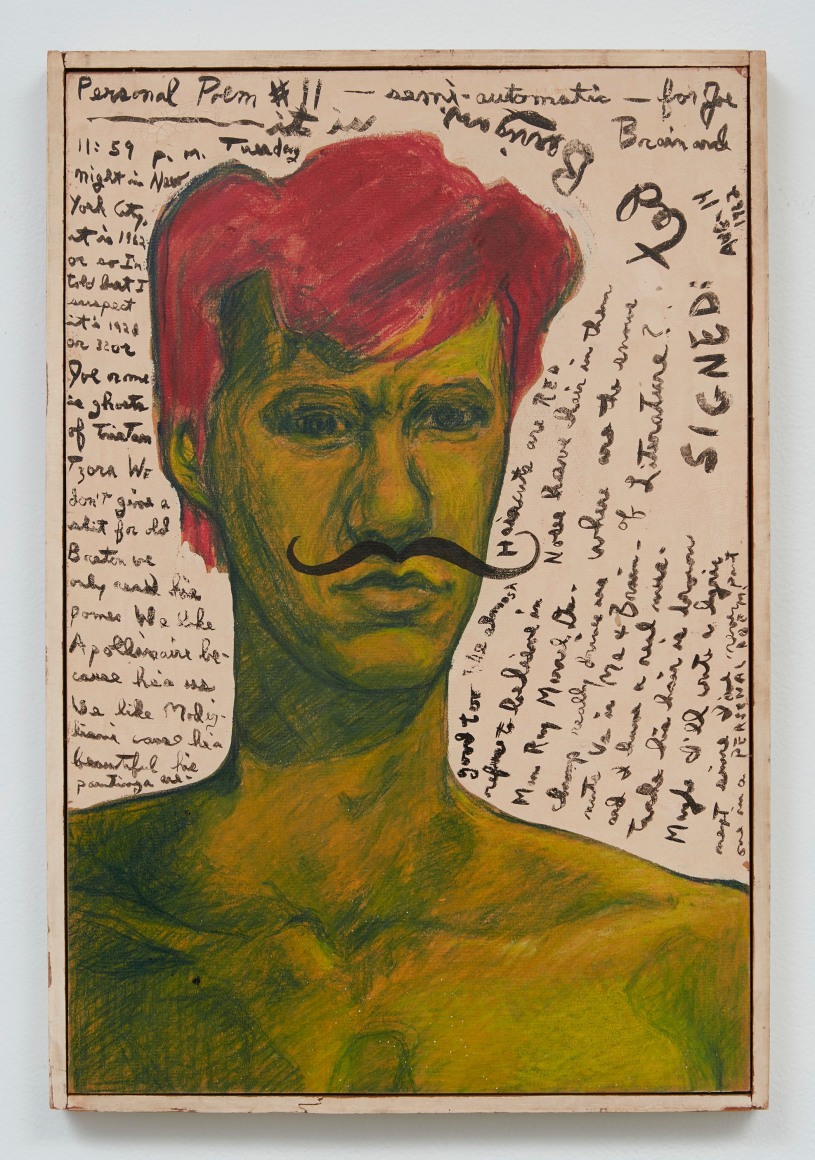 Personal Poem #11 — semi-automatic — for Joe
Brainard
it is
11:59 p. m. Tuesday
night in New
York City,
it is 1962
or so Im
told but I
suspect
it's 1928
or
Joe or me
is ghosts
of Tristan
Tzara We
don't give a
shit for old
Breton we
only read his
pomes We like
Apollinaire be-
cause he's us
We like Modig-
liani cause he's
beautiful his
paintings are
good too We almost
refuse to believe in
Man Ray Marcel Du-
champ really
nute Us is Max & Brain-
ard I have a red
his hair is brown
Maybe I'll write a lyric
next since I've never put
one in a PERSONAL POEM.
Haircuts are RED
Noses have hair in them
where are the snows
of Literature?
SIGNED: